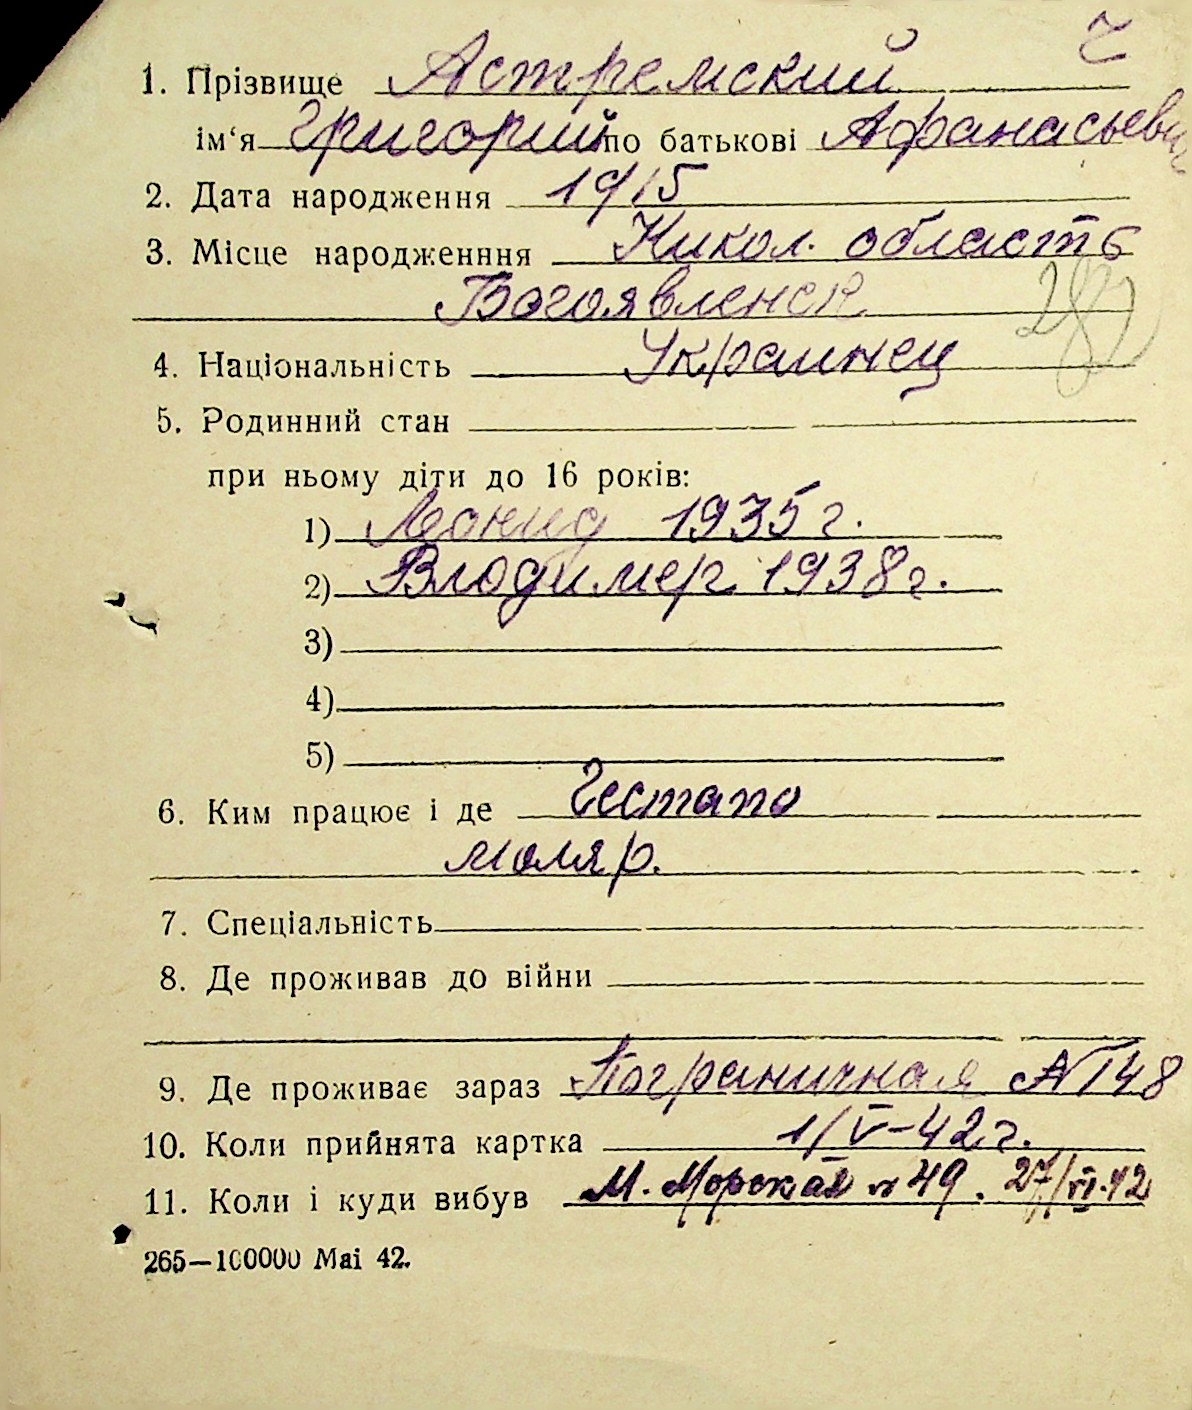 ч
1. Прізвище Астремский
ім‘я Григорий по батькові Афанасьевич
2. Дата народження 1915
3. Місце народженння Никол. область
Богоявленск
282
4. Національність Украинец
5. Родинний стан
при ньому діти до 16 років:
1) Леонид 1935 г.
2) Влодимер 1938 г.
3)
4)
5)
6. Ким працює і де Гестапо
моляр.
7. Спеціальність
8. Де проживав до війни
9. Де проживає зараз Пограничная № 148
10. Коли прийнята картка 1/V-42 г.
11. Коли і куди вибув М. Морская № 49. 27/VI.42
265—100000 Mai 42.